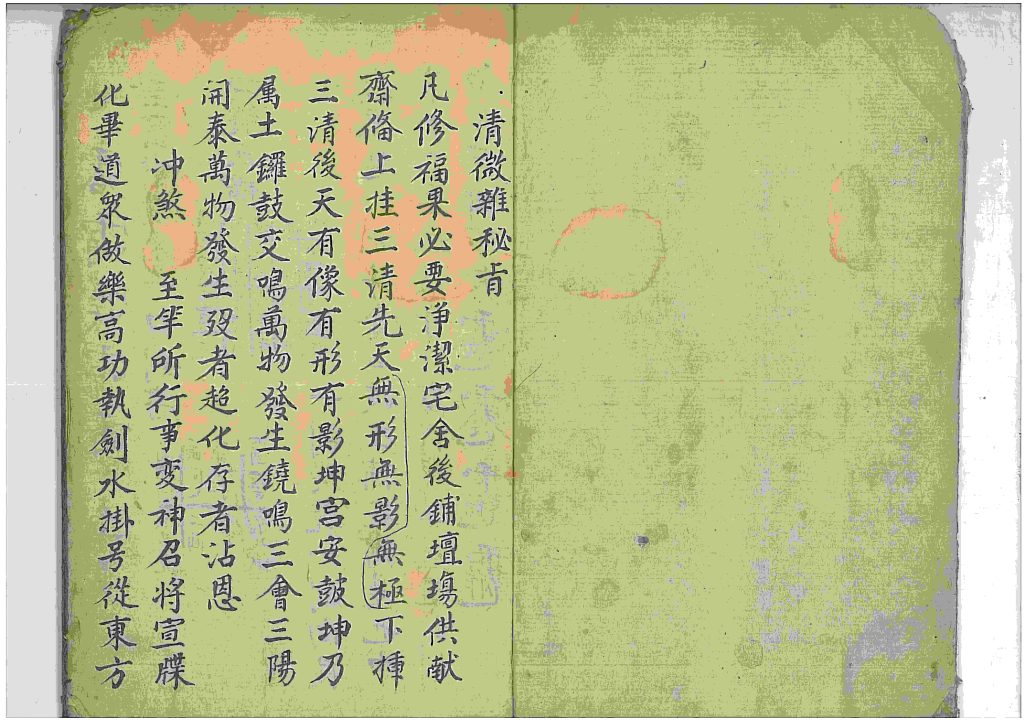 清微雜秘旨
凡修福果必要淨潔宅舍後鋪壇場供献
齋俻上挂三清先天無形無影無極下揷
三清後天有像有形有影坤宮安鼓坤乃
属土鑼鼓交鳴萬物發生鐃鳴三會三陽
開泰萬物發生殁者超化存者沾恩
冲煞 至竿所行事变神召将宣牒
化畢道眾做樂高功執劍水掛号從東方